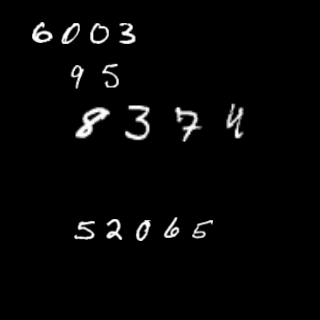 6003
95
8374
52065